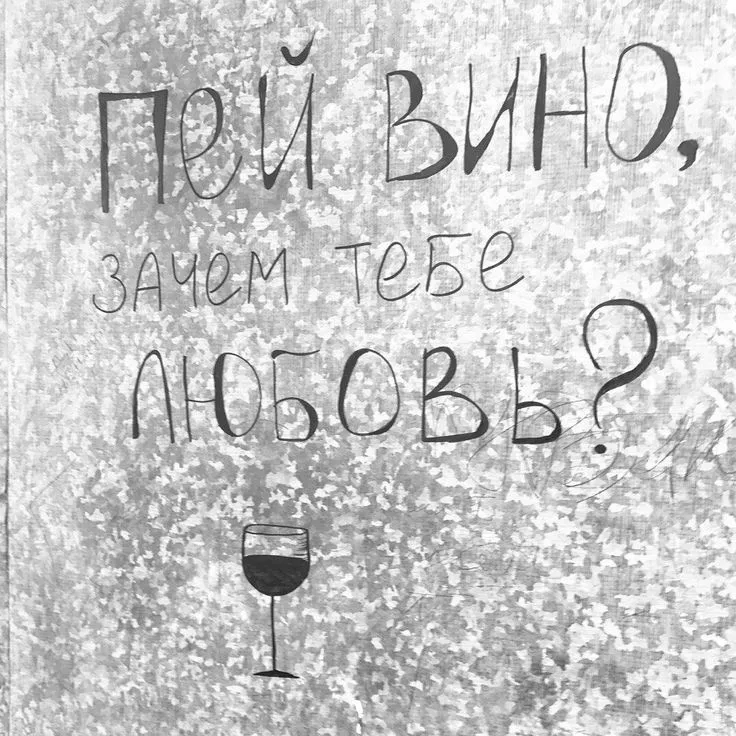 пей вино,
зачем тебе
любовь?